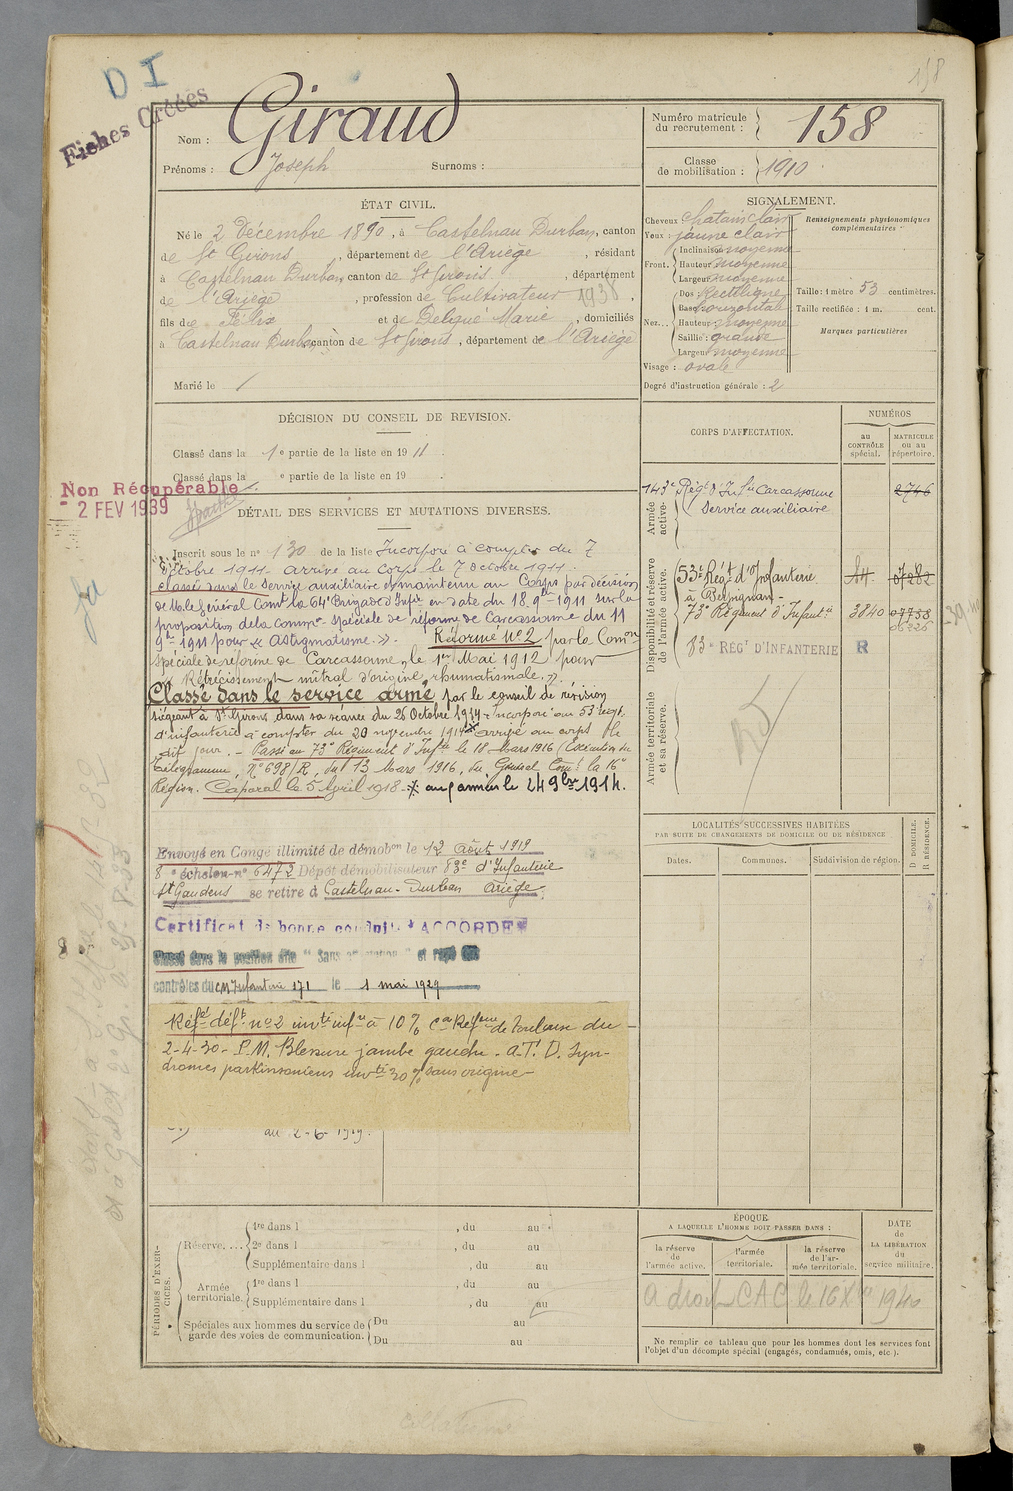 158
D I
Fiches Créées
Nom : Giraud
Prénoms : Joseph Surnoms :
Numéro matricule du recrutement : 158
Classe de mobilisation : 1910
ÉTAT CIVIL.
Né le 2 Décembre 1890, à Castelnau Durban, canton
de St Girons, département de l'Ariège, résidant
à Castelnau Durban, canton de St Girons, département
de l'Ariège, profession de Cultivateur 1938,
fils de Félix et de Marie, domiciliés
à Castelnau Durban, canton de St Girons, département de l'Ariège
Marié le /
SIGNALEMENT.
Cheveux châtain clair
Yeux : jaune clair
Front. Inclinaison moyenne
Hauteur moyenne
Largeur moyenne
Nez... Dos rectiligne
Base horizontale
Hauteur moyenne
Saillie : grande
Largeur moyenne
Visage : ovale
Renseignements physionomiques complémentaires
Taille : 1 mètre 53 centimètres.
Taille rectifiée : 1 m. cent.
Marques particulières
Degré d'instruction générale : 2
DÉCISION DU CONSEIL DE REVISION.
Classé dans la 1e partie de la liste en 1911.
Classé dans la e partie de la liste en 19
Non Récupérable
- 2 FEV 1939
CORPS D'AFFECTATION.
NUMÉROS
au CONTRÔLE spécial.
MATRICULE ou au répertoire.
Armée active.
143e Régt d'Infie Carcassonne 2746
Service auxiliaire
Disponibilité et réserve de l'armée active.
53e Régt d'Infanterie
à Perpignan
73e Régiment d'Infantie 3840 07733
83e REGt D'INFANTERIE R
Armée territoriale et sa réserve.
DÉTAIL DES SERVICES ET MUTATIONS DIVERSES.
Inscrit sous le n° 130 de la liste Incorporé à compter du 7
Octobre 1911. arrivé au corps le 7 octobre 1911.
classé dans le service auxiliaire et maintenu au Corps par décision
de M. le Général Comt la 64e Brigade d'Infie en date du 18 9bre 1911 sur la
proposition de la Common spéciale de réforme de Carcassonne du 11
9bre 1911 pour « Astigmatisme. ». Réformé N°2 par la Comon
spéciale de réforme de Carcassonne, le 1er Mai 1912 pour
« Rétrécissement mitral d'origine rhumatismale. ».
Classé dans le service armé par le conseil de révision
siégeant à St Girons dans sa séance du 26 Octobre 1914. Incorporé au 53e régt.
d'infanterie à compter du 20 novembre 1914 * arrivé au corps le
dit jour. - Passé au 73e Régiment d'Infie le 18 Mars 1916 (Exécution du
Télégramme, N° 698/R, du 13 Mars 1916, du Général Comt la 16e
Région. Caporal le 5 Avril 1918. * aux armées le 24 9bre 1914.
Envoyé en Congé illimité de démobon le 12 Août 1919
8e échelon n° 6472 Dépôt démobilisateur 83e d'Infanterie
St Gaudens se retire à Castelnau-Durban Ariège.
Certificat de bonne conduite ACCORDÉ
Classé dans la position dite "Sans affectation" et rayé des
contrôles du CM Infanterie 171 le 1 mai 1929
Réfé déft n°2 invté infre à 10% Con Réfme de Toulouse du
2-4-30 - P.M. Blessure jambe gauche. A.T. D. Syn-
dromes parkinsoniens invté 30% sans origine
au 2-6-1919.
LOCALITÉS SUCCESSIVES HABITÉES
PAR SUITE DE CHANGEMENTS DE DOMICILE OU DE RÉSIDENCE
Dates.
Communes.
Subdivision de région.
D DOMICILE.
R RÉSIDENCE.
PÉRIODES D'EXERCICES.
Réserve....
1re dans l , du au
2e dans l , du au
Supplémentaire dans l , du au
Armée territoriale.
1re dans l , du au
Supplémentaire dans l , du au
Spéciales aux hommes du service de garde des voies de communication.
Du au
Du au
ÉPOQUE
A LAQUELLE L'HOMME DOIT PASSER DANS :
la réserve de l'armée active.
l'armée territoriale.
la réserve de l'armée territoriale.
DATE de LA LIBÉRATION du service militaire.
a droit CAC le 16 Xbre 1940
Ne remplir ce tableau que pour les hommes dont les services font
l'objet d'un décompte spécial (engagés, condamnés, omis, etc.).